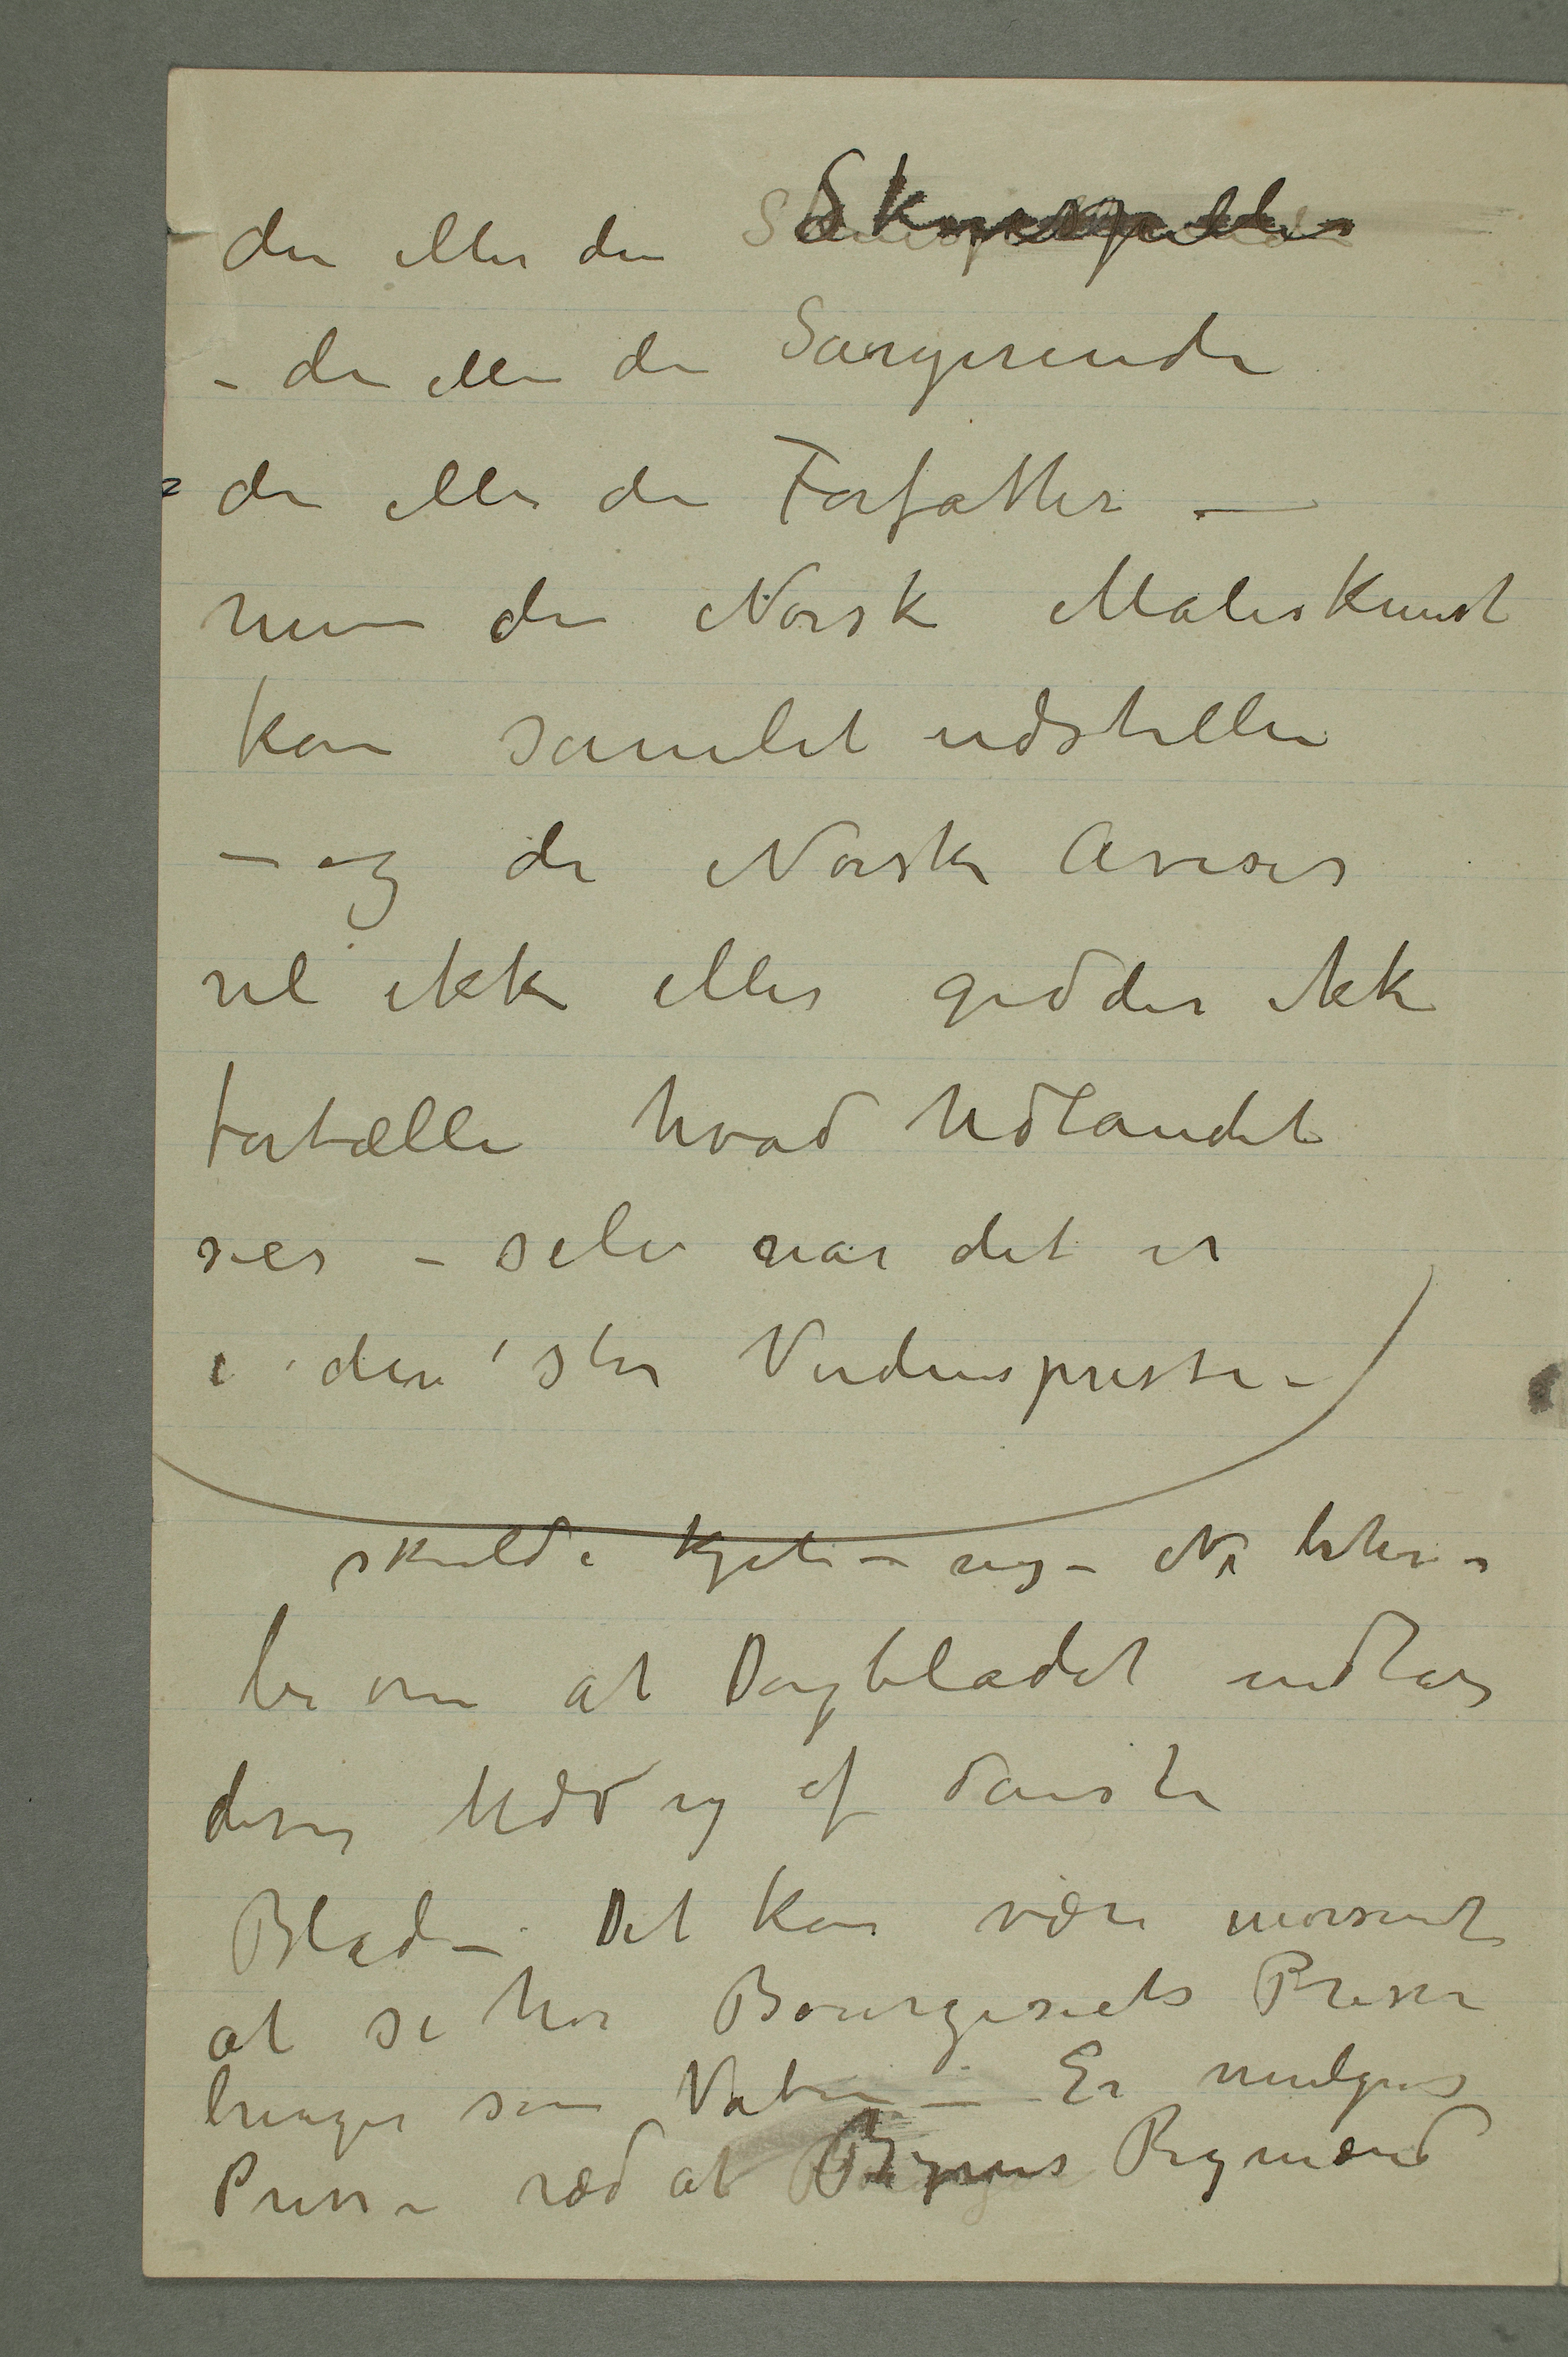 den eller den Skuespiller
– den eller den Sangerinde
den eller den Forfatter –
men den Norske Malerkunst
kan samlet udstille
– og de Norske Aviser
vil ikke eller gidder ikke
fortælle hvad Udlandet
sier – selv når det er
i den store Verdenspresse –
skulde
be om at Dagbladet indtar
disse Uddrag af danske
Blade – Det kan være morsomt
at se hvor Bourgeoisets Presse
bringer som – Er
Presse ræd at